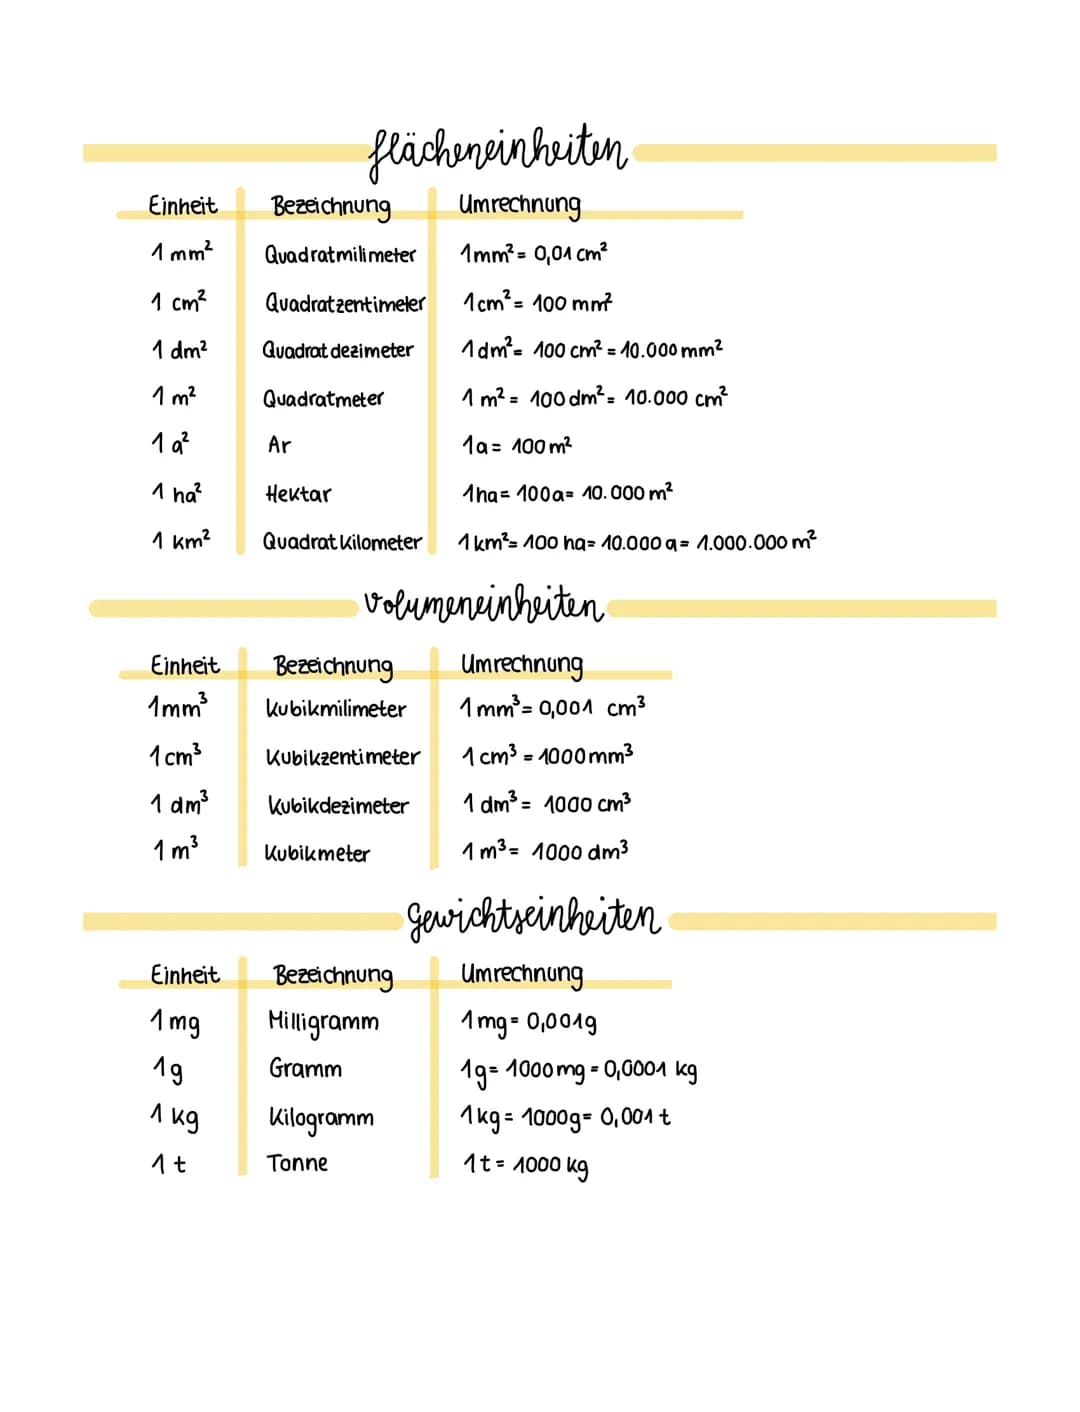 flächeneinheiten
Einheit Bezeichnung Umrechnung
1 mm² Quadratmilimeter 1mm² = 0,01 cm²
1 cm² Quadratzentimeter 1cm² = 100 mm²
1 dm² Quadratdezimeter 1dm² = 100 cm² = 10.000 mm²
1 m² Quadratmeter 1 m² = 100 dm² = 10.000 cm²
1 a² Ar 1a = 100 m²
1 ha² Hektar 1ha = 100a = 10.000 m²
1 km² Quadratkilometer 1 km² = 100 ha = 10.000 a = 1.000.000 m²
volumeneinheiten
Einheit Bezeichnung Umrechnung
1mm³ Kubikmilimeter 1 mm³ = 0,001 cm³
1cm³ Kubikzentimeter 1 cm³ = 1000mm³
1 dm³ Kubikdezimeter 1 dm³ = 1000 cm³
1 m³ Kubikmeter 1 m³ = 1000 dm³
gewichtseinheiten
Einheit Bezeichnung Umrechnung
1 mg Milligramm 1mg = 0,001g
1g Gramm 1g = 1000mg = 0,0001 kg
1 kg Kilogramm 1kg = 1000g = 0,001 t
1 t Tonne 1t = 1000 kg